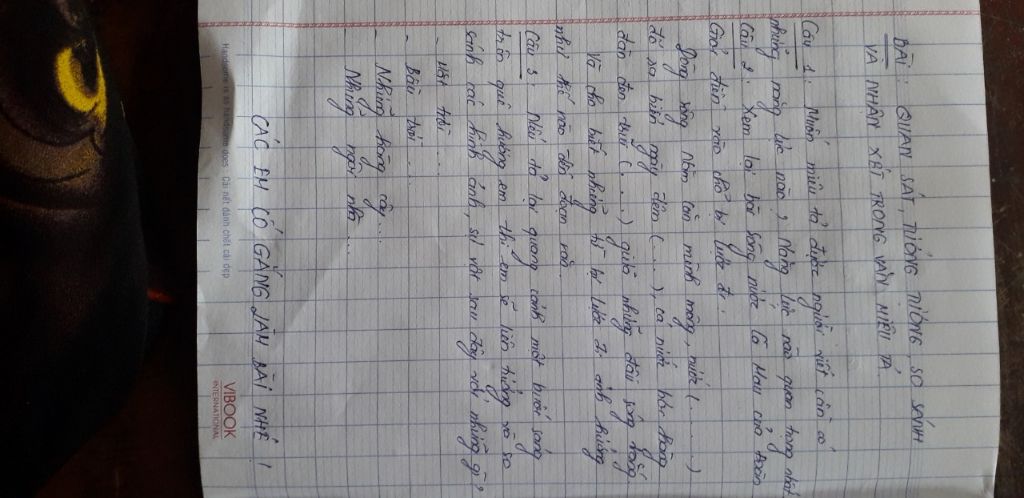 BÀI : QUAN SÁT, TƯỞNG TƯỢNG, SO SÁNH
VÀ NHẬN XÉT TRONG VĂN MIÊU TẢ.
Câu 1 : Muốn miêu tả được người viết cần có
những năng lực nào ? Năng lực nào quan trọng nhất.
Câu 2 : Xem lại bài Sông nước Cà Mau của Đoàn
Giỏi điền vào chỗ bị lược đi.
Dòng sông Năm Căn mênh mông, nước (.........)
đổ ra biển ngày đêm (....), cá nước bơi hàng
đàn đen trũi (....) giữa những đầu sóng trắng
Và cho biết những từ bị lược đi ảnh hưởng
như thế nào đến đoạn văn.
Câu 3 : Nếu tả lại quang cảnh một buổi sáng
trên quê hương em thì em sẽ liên tưởng và so
sánh các hình ảnh, sự vật sau đây với những gì ?
- Mặt trời ....
- Bầu trời ....
- Những hàng cây....
- Những ngôi nhà....
CÁC EM CỐ GẮNG LÀM BÀI NHÉ !
Handsome is as handsome does | Cái nết đánh chết cái đẹp
VIBOOK
INTERNATIONAL